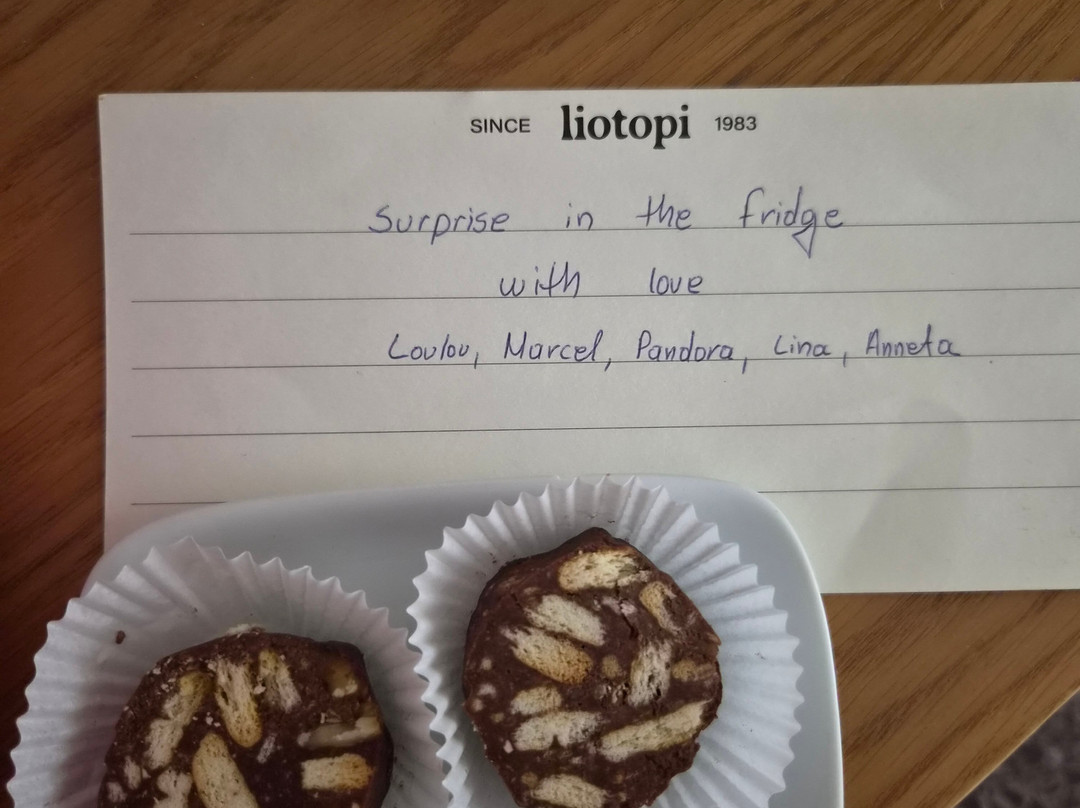 SINCE liotopi 1983
Surprise in the fridge
with love
Loulou, Marcel, Pandora, Lina, Anneta